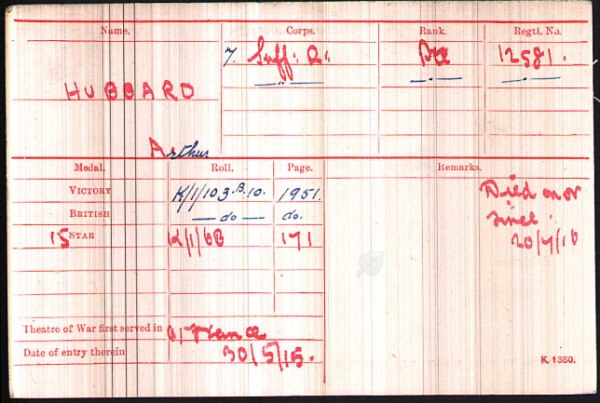 Name. Corps. Rank. Regtl. No.
7. Suff: R: Pte 12581.
HUBBARD
Arthur
Medal. Roll. Page. Remarks.
VICTORY K/1/103.B.10. 1951. Died on or
BRITISH — do — do. since
15 STAR K/1/6B 171 20/7/16
Theatre of War first served in France
Date of entry therein 30/5/15.
K. 1380.